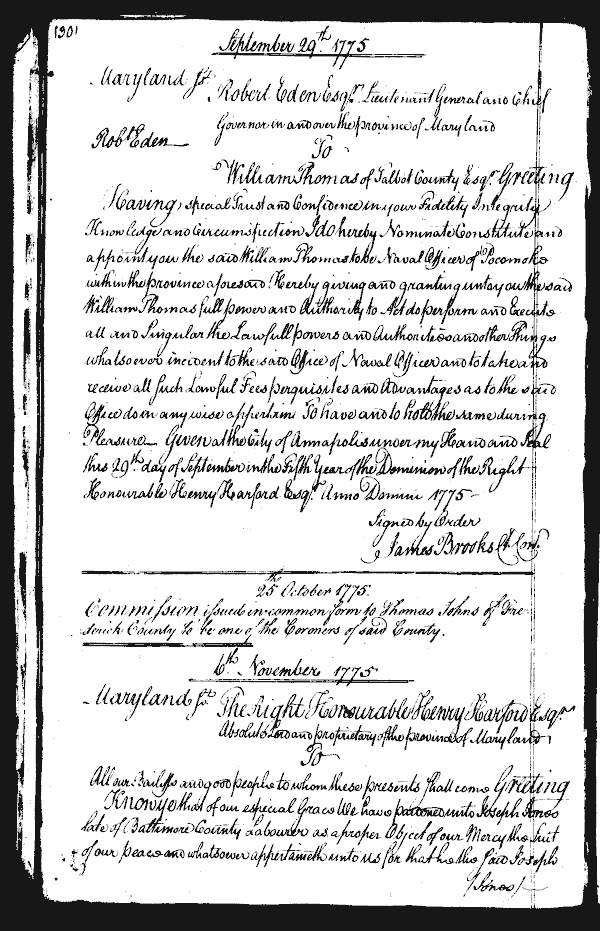 190
September 29th. 1775
Maryland sst. Robert Eden Esqr. Lieutenant General and Chief
Governor in and over the province of Maryland
Robt. Eden
To
William Thomas of Talbot County Esqr. Greeting
Having special Trust and Confidence in your Fidelity Integrity
Knowledge and Circumspection I do hereby Nominate Constitute and
appoint you the said William Thomas to be Naval Officer of Pocomoke
within the province aforesaid. Hereby giving and granting unto you the said
William Thomas full power and Authority to Act do perform and Execute
all and Singular the Lawfull powers and Authorities and other Things
whatsoever incident to the said Office of Naval Officer and to take and
receive all such Lawful Fees perquisites and Advantages as to the said
Office do in any wise appertain To have and to hold the same during
Pleasure Given at the City of Annapolis under my Hand and Seal
this 29th. day of September in the Fifth Year of the Dominion of the Right
Honourable Henry Harford Esqr. Anno Domini 1775
Signed by Order
James Brooks Cl. Con.
25th October 1775.
Commission issued in common form to Thomas Johns of Fre
derick County to be one of the Coroners of said County.
6th. November 1775
Maryland sst. The Right Honourable Henry Harford Esqr.
Absolute Lord and proprietary of the province of Maryland
To
All our Bailiffs and good people to whom these presents shall come Greeting
Know ye that of our especial Grace We have pardoned unto Joseph Jones
late of Baltimore County Labourer as a proper Object of our Mercy the Suit
of our peace and whatsoever appertaineth unto us for that he the said Joseph
(Jones)